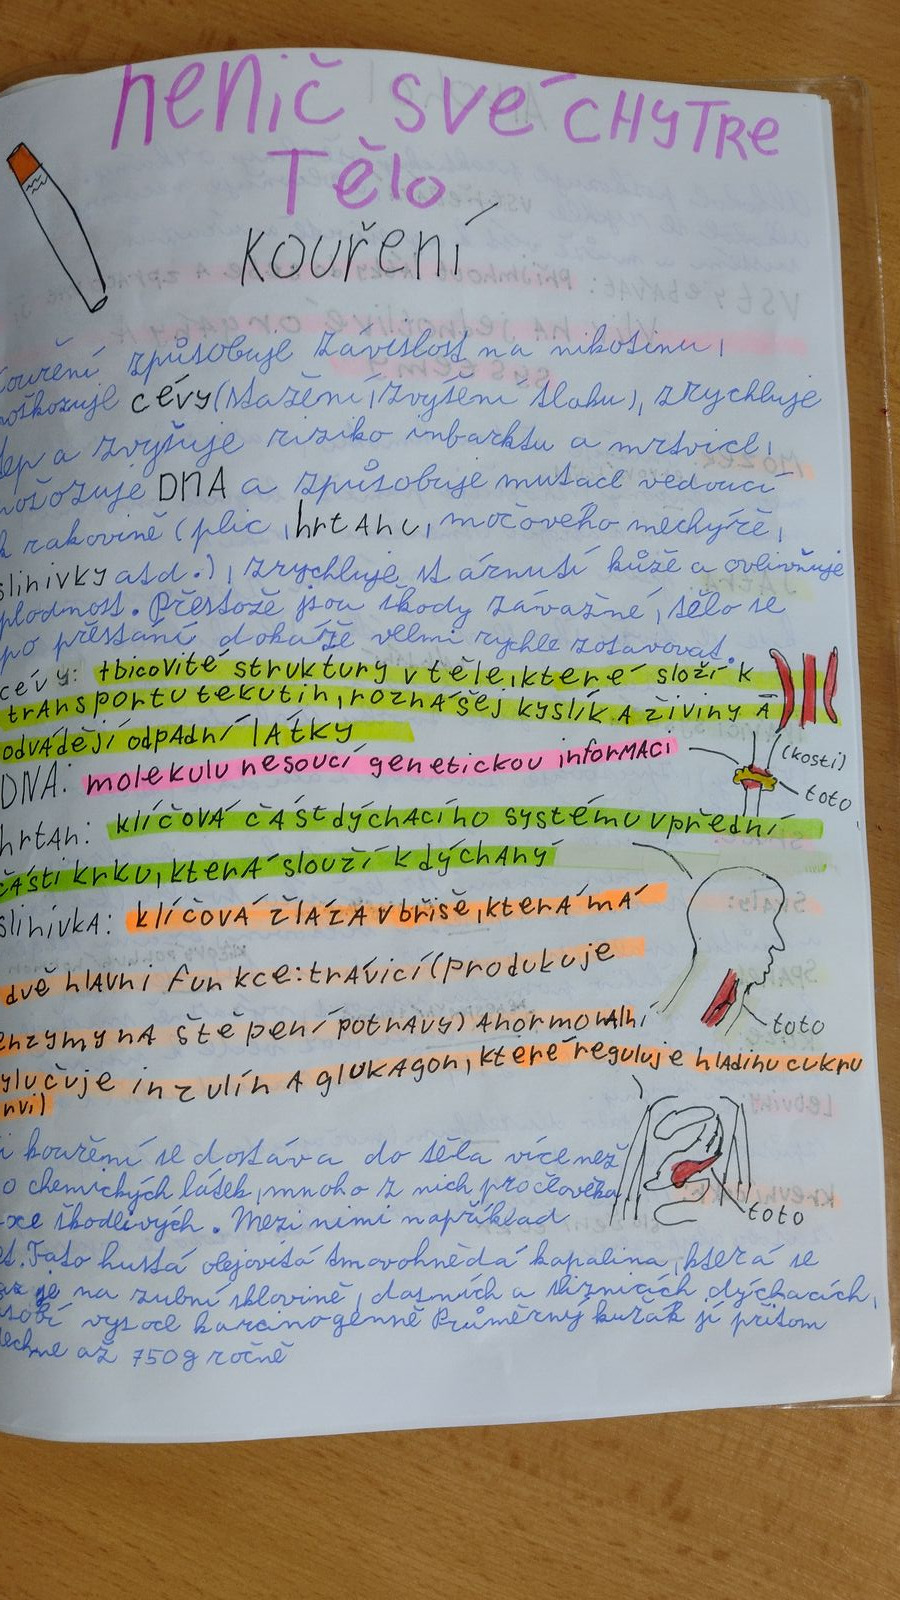 nenič své CHYTRE
Tělo
kouření
kouření způsobuje závislost na nikotinu,
poškozuje cévy (stažení, zvýšení tlaku), zrychluje
tep a zvyšuje riziko inbarktu a mrtvice,
DNA a způsobuje mutace vedoucí
k rakovině (plic, hrtanu, močového měchýře,
slinivky atd.), zrychluje stárnutí kůže a ovlivňuje
plodnost. Přestože jsou škody závažné, tělo se
po přestání dokáže velmi rychle zotavovat.
cévy: tbicovité struktury v těle, které složí k
transportu tekutin, roznášej kyslík a živiny A
odvádějí odpadní látky
DNA: molekulu nesoucí genetickou informaci
(kosti)
toto
hrtan: klíčová část dýchacího systému v přední
části krku, která slouží k dýchaný
slinivka: klíčová žláza v břiše, která má
dvě hlavní funkce: trávicí (produkuje
enzymy na štěpení potravy) a hormonální
toto
ylučuje inzulín a glukagon, které reguluje hladinu cukru
rvi)
i kouření se dostáva do těla více než
o chemických látek, mnoho z nich pro člověka
škodlivých. Mezi nimi například
toto
et. Tato hustá olejovitá tmavohnědá kapalina, která se
je na zubní sklovině, dasních a sliznicích dýchacích,
sobí vysoce karcinogenně Průměrný kuřák jí přitom
dechne až 750g ročně